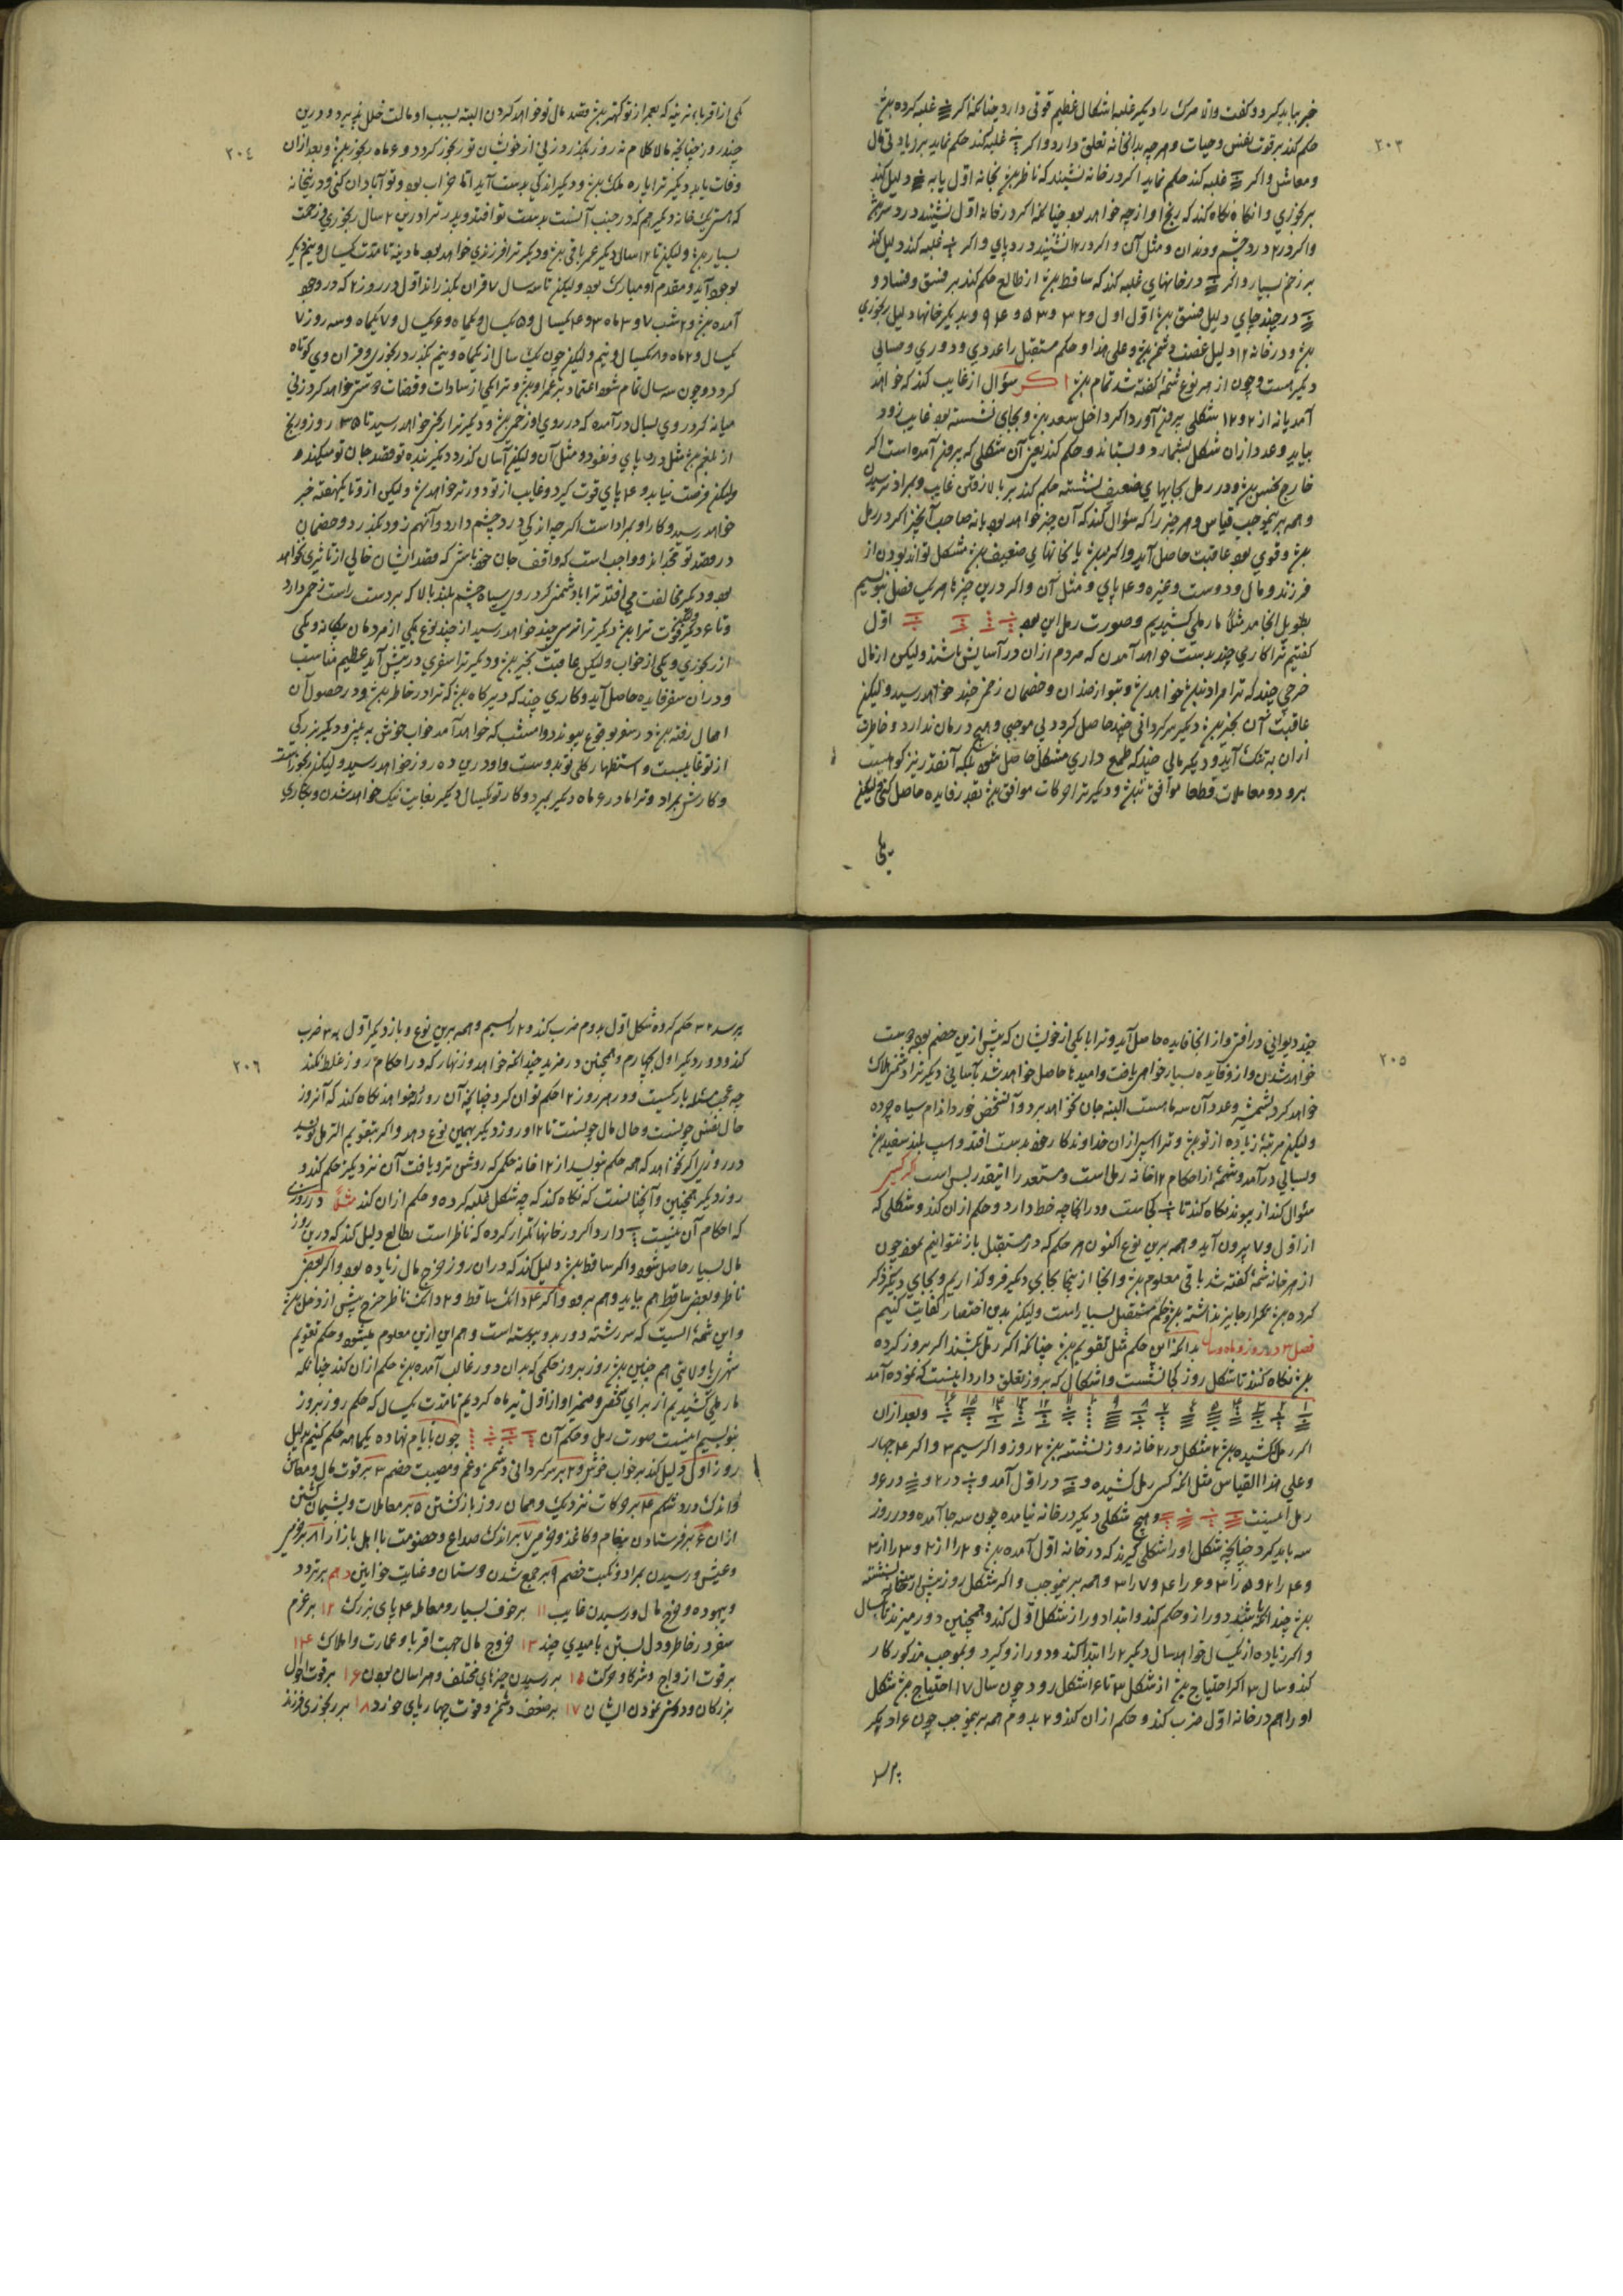 ٢٠٣
خبر بباید کرد و کفت والا مرک را دیکر غلبه اشکال عظیم قوتی دارد چنانکه اکر غلبه کرده
حکم کند بر قوت نفس و حیات و هر چه بدانخانه تعلق دارد و اکر غلبه کند حکم نماید بر زیادتی مال
و معاش و اکر غلبه کند حکم نماید اکر در خانه نشیند که ناظر بخانه اول یا به دلیل کند
بر رنجوری و آنکاه نکاه کند که رنج او از چه خواهد بود چنانکه اکر در خانه اول نشیند درد سر
و اکر در ٢ درد چشم و دندان و مثل آن و اکر در ١٢ نشیند درد پای و اکر غلبه کند دلیل کند
بر زخم بسیار و اکر در خانهای غلبه کند که ساقط از طالع حکم کند بر فسق و فساد و
در چند جای دلیل فسق اول اول و ٢ و ٣ و ٥ و ٤ و ٩ و بدیکر خانها دلیل رنجوری
و در خانه ١٢ دلیل غصه و علی هذا و حکم مستقبل را عددی و دوری و مسائلی
دیکر هست و چون از هر نوع شمه کفته شد تمام اکر سؤال از غایب کند که خواهد
آمد یا نه از ٢ و ١٢ شکلی بیرون آورد اکر داخل سعد و بجای نشسته بود غایب زود
بیاید و عدد از آن شکل بشمارد و بستاند و حکم کند یعنی آن شکلی که بیرون آمده است اکر
خارج نحس و در رمل بجایهای ضعیف نشسته حکم کند بر بلا رفتن غایب و بمراد نرسیدن
و همه برینموجب قیاس و هر چیز را که سؤال کند که آن چیز خواهد بود یا نه صاحب آنچیز اکر در رمل
و قوی بود عاقبت حاصل آید و اکر یا بخانهای ضعیف مشکل تواند بودن از
فرزند و مال و دوست و غیره و ٤ پای و مثل آن و اکر درین چیزها هر یک فصل بنویسیم
بطویل انجامد مثلا ما رملی کشیدیم و صورت رمل این بود اول
کفتیم ترا کاری چند بدست خواهد آمدن که مردم از آن در آسایش باشند و لیکن از مال
خرجی چند که ترا مراد خواهد و بتو از ضدان و خصمان زخمی چند خواهد رسید و لیکن
عاقبت آن بخیر دیکر سرکردانی چند حاصل کردد بی موجبی و هیچ درمان ندارد و خاطرت
از آن به تنک آید و دیکر مالی چند که طمع داری مشکل حاصل شود بلکه آنقدر نیز که هست
برود و معاملات قطعا موافق و دیکر ترا حرکات موافق بقدر فایده حاصل کنی و لیکن
یکی
٢٠٤
یکی از اقربا نرینه که بعمر از تو کهتر قصد مال تو خواهد کردن البته بسبب او مالت خلل پذیرد و درین
چند روز چنانچه مالا کلام نه روز بکذرد زنی از خویشان تو رنجور کردد و ٤ ماه رنجور و بعد از آن
وفات یابد دیکر ترا پاره ملک و دیکر اندکی بدست آید اما خراب بود و تو آبادان کنی و در نیخانه
که هستی یک خانه دیکر هم که در جنب آنست بدست تو افتد و پدر ترا درین ٢ سال رنجوری و زحمت
بسیار و لیکن تا ١٢ سال دیکر عمر باقی و دیکر ترا فرزندی خواهد بود مادینه تا مدت یکسال و نیم دیکر
بوجود آید و مقدم او مبارک بود و لیکن تا سه سال ٧ قران بکذراند اول در روز ٢ که در وجود
آمده و ٢ شب ٧ و ٣ ماه ٣ و ٤ یکسال و ٥ یکسال و یکماه و ٦ یکسال و ٧ یکماه و سه روز ٧
یکسال و ٢ ماه و ٨ یکسال و نیم و لیکن چون یک سال از یکماه و نیم بکذرد رنجوری و قران وی کوتاه
کردد و چون سه سال تمام شود اعتماد بر عمر او و ترا یکی از سادات و قضات دوستی خواهد کرد زنی
میانه کرد روی بسال در آمده که در روی او زخمی و دیکر ترا رنجی خواهد رسید تا ٣٥ روز و رنج
از بلغم مثل درد پای و نفخ و مثل آن و لیکن آسان کذرد دیکر بنده تو قصد جان تو میکند
و لیکن فرصت نیابد و ٤ پای قوت کیرد و غایب از تو دورتر خواهد و لیکن از و تا یکهفته خبر
خواهد رسید و کار او بمراد است اکر چه اندکی درد چشم دارد و آنهم زود بکذرد و خصمان
در قصد تو بجدند و واجب است که واقف جان خود باش که قصد ایشان خالی از تاثیری نخواهد
بود و دیکر مخالفت می افتد ترا با دشمنی کرد روی سیاه چشم بلند بالا که بر دست راست زخمی دارد
و تا ٤ دیکر ترا دیکر ترا ترسی چند خواهد رسید از چند نوع یکی از مردمان بیکانه و یکی
از رنجوری و یکی از خواب و لیکن عاقبت بخیر و دیکر ترا سفری در پیش آید عظیم مناسب
و در آن سفر فایده حاصل آید و کاری چند که دیرکاه که ترا در خاطر و در حصول آن
اهمال رفته در سفر بوقوع پیوندد و امشب که خواهد آمد خواب خوش به بینی و دیکر بزرکی
از تو غایبست و استظهار کلی تو بدوست و او درین ده روز خواهد رسید و لیکن رنجور است
و کارش بمراد و ترا مادر ٤ ماه دیکر بمیرد و کار تو یکسال دیکر بغایت نیک خواهد شدن و بکاری
٢٠٥
چند دیوانی در افتی و از آنجا فایده حاصل آید و ترا با یکی از خویشان که پیش ازین خصم بود دوست
خواهد شدن و از و فایده بسیار خواهی یافت و امیدها حاصل خواهد شد بآسانی دیکر ترا دشمنی هلاک
خواهد کرد و عدد آن سه ماهست البته جان نخواهد برد و آنشخص خورد اندام سیاه چرده
و لیکن مرتبه زیاده از تو و ترا اسپی از آن خداوندکار خود بدست افتد و اسب بلند سفید
و بسالی در آمد و شمه از احکام ١٢ خانه رمل است و مستعد را اینقدر بس است اکر کسی
سؤال کند از پیوند نکاه کند تا کجاست و در آنجا چه خط دارد و حکم از آن کند و شکلی که
از اول و ٧ بیرون آید و همه برین نوع اکنون هر حکم که در مستقبل باز نتوانیم نمود چون
از هر خانه شمه کفته شد باقی معلوم و آنجا از اینجا بجای دیکر فرو کذاریم و بجای دیکر ذکر
کرده تکرار جایز نداشته و حکم مستقبل بسیار است و لیکن بدین اختصار کفایت کنیم
فصل ٣ در روز و ماه و سال بدانکه این حکم مثل تقویم چنانکه اکر رمل کشند اکر بروز کرده
نکاه کنند تا شکل روز کجا نشست و اشکال که بروز تعلق دارد اینست که نموده آمد
١ ٢ ٣ ٤ ٥ ٦ ٧ ٨ ٩ ١٠ ١١ ١٢ ١٣ ١٤ ١٥ ١٦ و بعد از آن
اکر رمل کشیده ٢ شکل در ٢ خانه روز نشسته ٢ روز و اکر سیم ٣ و اکر ٤ چهار
و علی هذا القیاس مثل آنکه کسی رمل کشیده و در اول آمد و در ٢ و در ٤ و
رمل اینست و هیچ شکلی دیکر در خانه نیامده چون سه جا آمده و در روز
سه باید کرد چنانچه شکل او را شکلی کیرند که در خانه اول آمده و ٢ را از ٢ و ٣ را از ٣
و ٤ را ٢ و ٥ را ٣ و ٦ را ٤ و ٧ را ٣ و همه برینموجب و اکر شکل روز پیش از خانه نشسته
چند آنکه باشد دور از و حکم کند و ابتداء دور از شکل اول کند و همچنین دور میزند تا سال
و اکر زیاده از یکسال خواهد سال دیکر ٢ را ابتدا کند و دور از و کیرد و بموجب مذکور کار
کند و سال ٣ اکر احتیاج از شکل ٣ تا ١٦ شکل رود چون سال ١٧ احتیاج شکل
او را هم در خانه اول ضرب کند و حکم از آن کند و ٢ بدوم همه برینموجب چون ١٦ دیکر
برسد
٢٠٦
برسد ٣٢ حکم کرده شکل اول بدوم ضرب کند و ٢ را بسیم و همه برین نوع و باز دیکر اول به ٣ ضرب
کند و دور دیکر اول بچهارم و همچنین در مزید چندانکه خواهد و زنهار که در احکام روز غلط نکند
چه عجب مسئله باریکیست و در هر روز ١٢ حکم توان کرد چنانچه آن روز که خواهد نکاه کند که آنروز
حال نفس چونست و حال مال چونست تا ١٢ و روز دیکر بهمین نوع دهد و اکر بتقویم الرمل نویسد
در روزی اکر نخواهد که همه حکم نویسد از ١٢ خانه حکمی که روشن تر و یافت آن نزدیکتر حکم کند و
روز دیکر همچنین و آنچنانست که نکاه کند که چه شکل غلبه کرده و حکم از آن کند مثلا در روزی
که احکام آن نیست دارد اکر در خانها تکرار کرده که ناظر است بطالع دلیل کند که درین روز
مال بسیار حاصل شود و اکر ساقط دلیل کند که در آن روز خرج مال زیاده بود و اکر بعضی
ناظر و بعضی ساقط هم بیاید و هم برود و اکر ٤ دانک ساقط و ٢ دانک ناظر خرج بیش از دخل
و این شمه ایست که سررشته دور بدو پیوسته است و هم از این معلوم میشود و حکم تقویم
شهری یا ولایتی هم چنین روز بروز حکمی که بدان دور غالب آمده حکم از آن کند چنانکه
ما رملی کشیدیم از برای شخصی و ضمیر او از اول تیر ماه کردیم تا مدت یک سال که حکم روز بروز
بنویسیم اینست صورت رمل و حکم آن چون با ایام نهاده یکماهه حکم کنیم بدلیل
روز اول دلیل کند بر خواب خوش و ٢ بر سرکردانی و دشمن و غم و مصیبت خصم ٣ بر قوت مال و معاش
و اندک درد شکم ٤ بر حرکات نزدیک و همان روز باز کشتن ٥ بر معاملات و پشیمان کشتن
از آن ٦ بر فرستادن پیغام و کاغذ و خرمی ٧ بر اندک صداع و خصومت با اهل بازار ٨ بر خرمی
و عیش و رسیدن بمراد و نکبت خصم ٩ بر جمع شدن دوستان و عنایت خواتین دهم بر تردد
و بیهوده و خرج مال و رسیدن غایب ١١ بر خوف بسیار و معامله ٤ پای بزرک ١٢ بر عزم
سفر در خاطر و دل بستن بامیدی چند ١٣ خروج مال جهت اقربا و عمارت و املاک ١٤
بر قوت ازواج و شرکا و حرکت ١٥ بر رسیدن چیزهای مختلف و هراسان بودن ١٦ بر قوت احوال
بزرکان و دوستی نمودن ایشان ١٧ بر ضعف دشمن و فوت چهارپای خورد ١٨ بر رنجوری فرزند